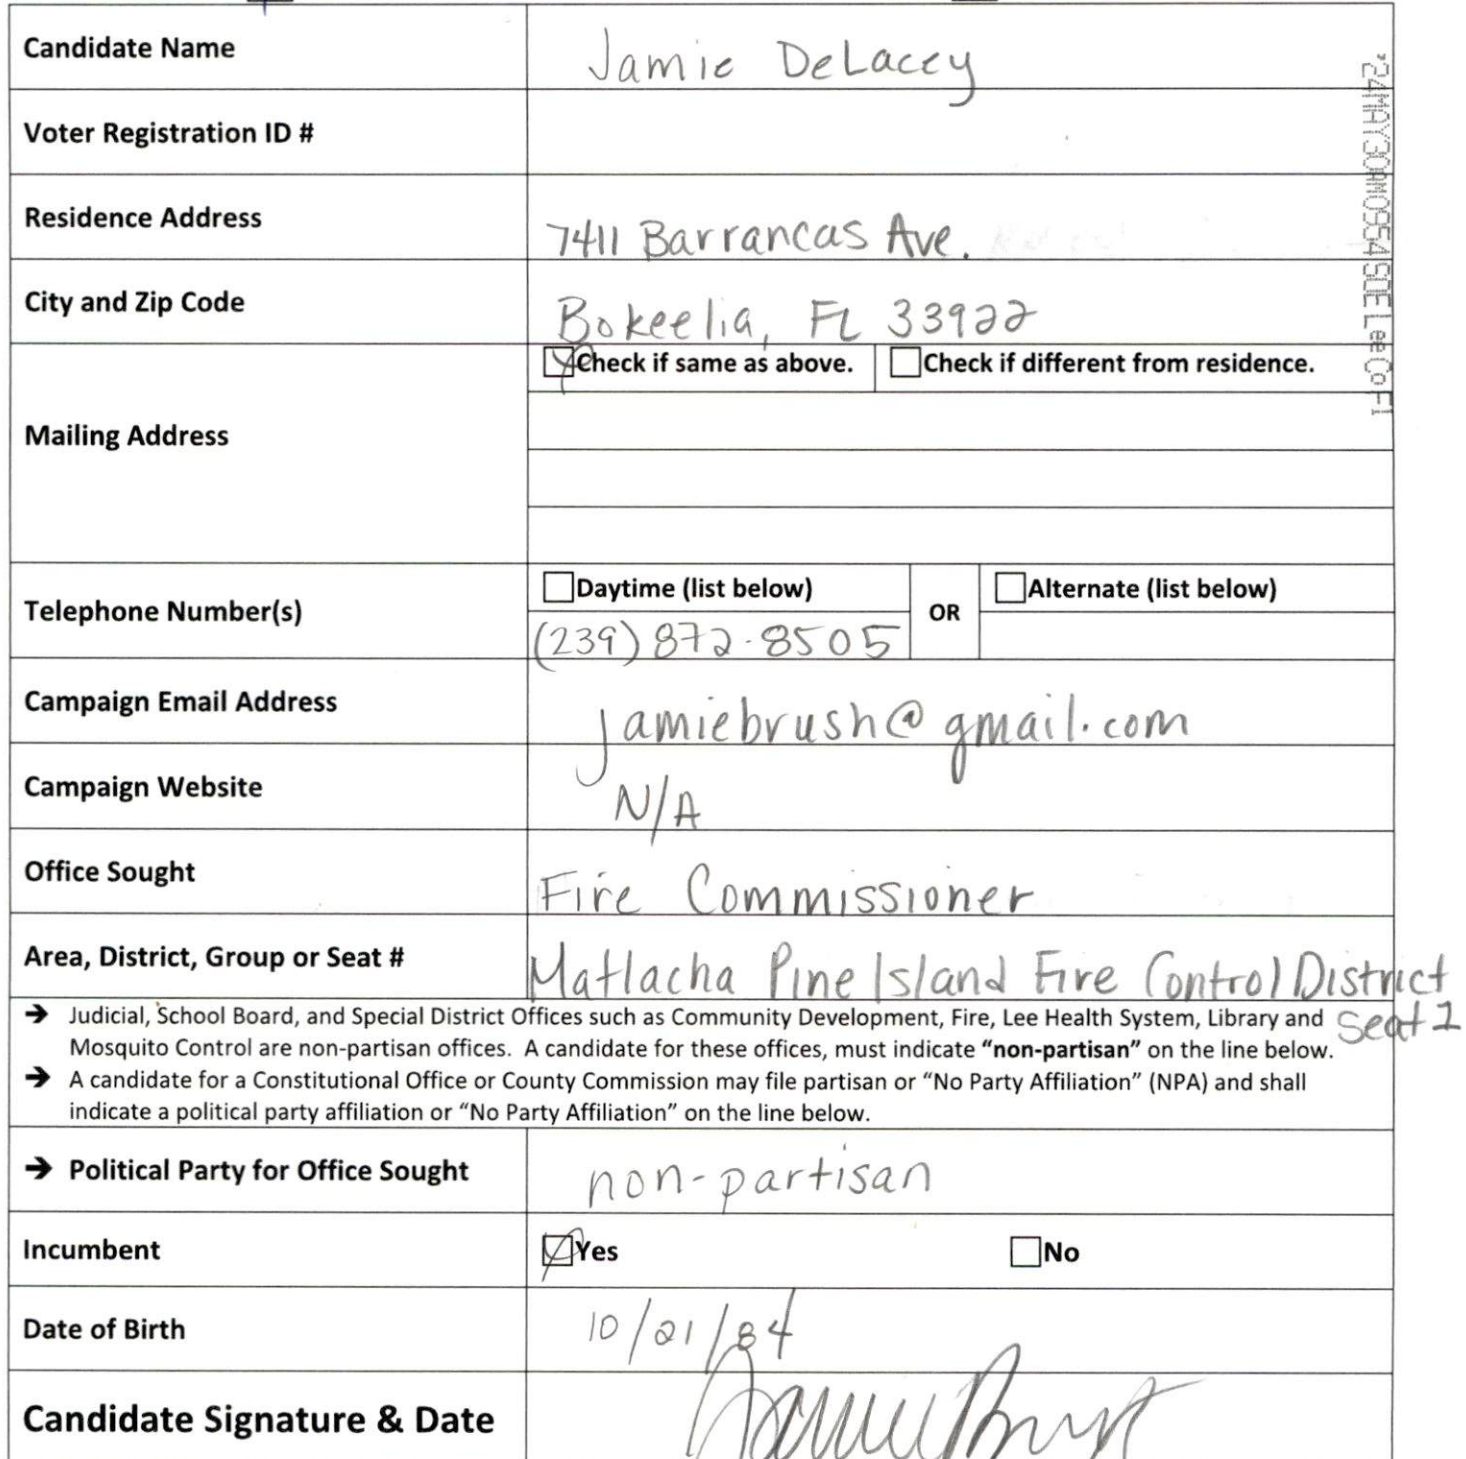 Candidate Name
Jamie DeLacey
Voter Registration ID #
Residence Address
7411 Barrancas Ave.
City and Zip Code
Bokeelia, FL 33922
Mailing Address
Check if same as above.
Check if different from residence.
Telephone Number(s)
Daytime (list below)
OR
Alternate (list below)
(239) 872-8505
Campaign Email Address
jamiebrush@gmail.com
Campaign Website
N/A
Office Sought
Fire Commissioner
Area, District, Group or Seat #
Matlacha Pine Island Fire Control District
Seat 1
→ Judicial, School Board, and Special District Offices such as Community Development, Fire, Lee Health System, Library and
Mosquito Control are non-partisan offices. A candidate for these offices, must indicate “non-partisan” on the line below.
→ A candidate for a Constitutional Office or County Commission may file partisan or “No Party Affiliation” (NPA) and shall
indicate a political party affiliation or “No Party Affiliation” on the line below.
→ Political Party for Office Sought
non-partisan
Incumbent
Yes
No
Date of Birth
10/21/84
Candidate Signature & Date
'24MAY30AM0954SOE Lee Co Fl